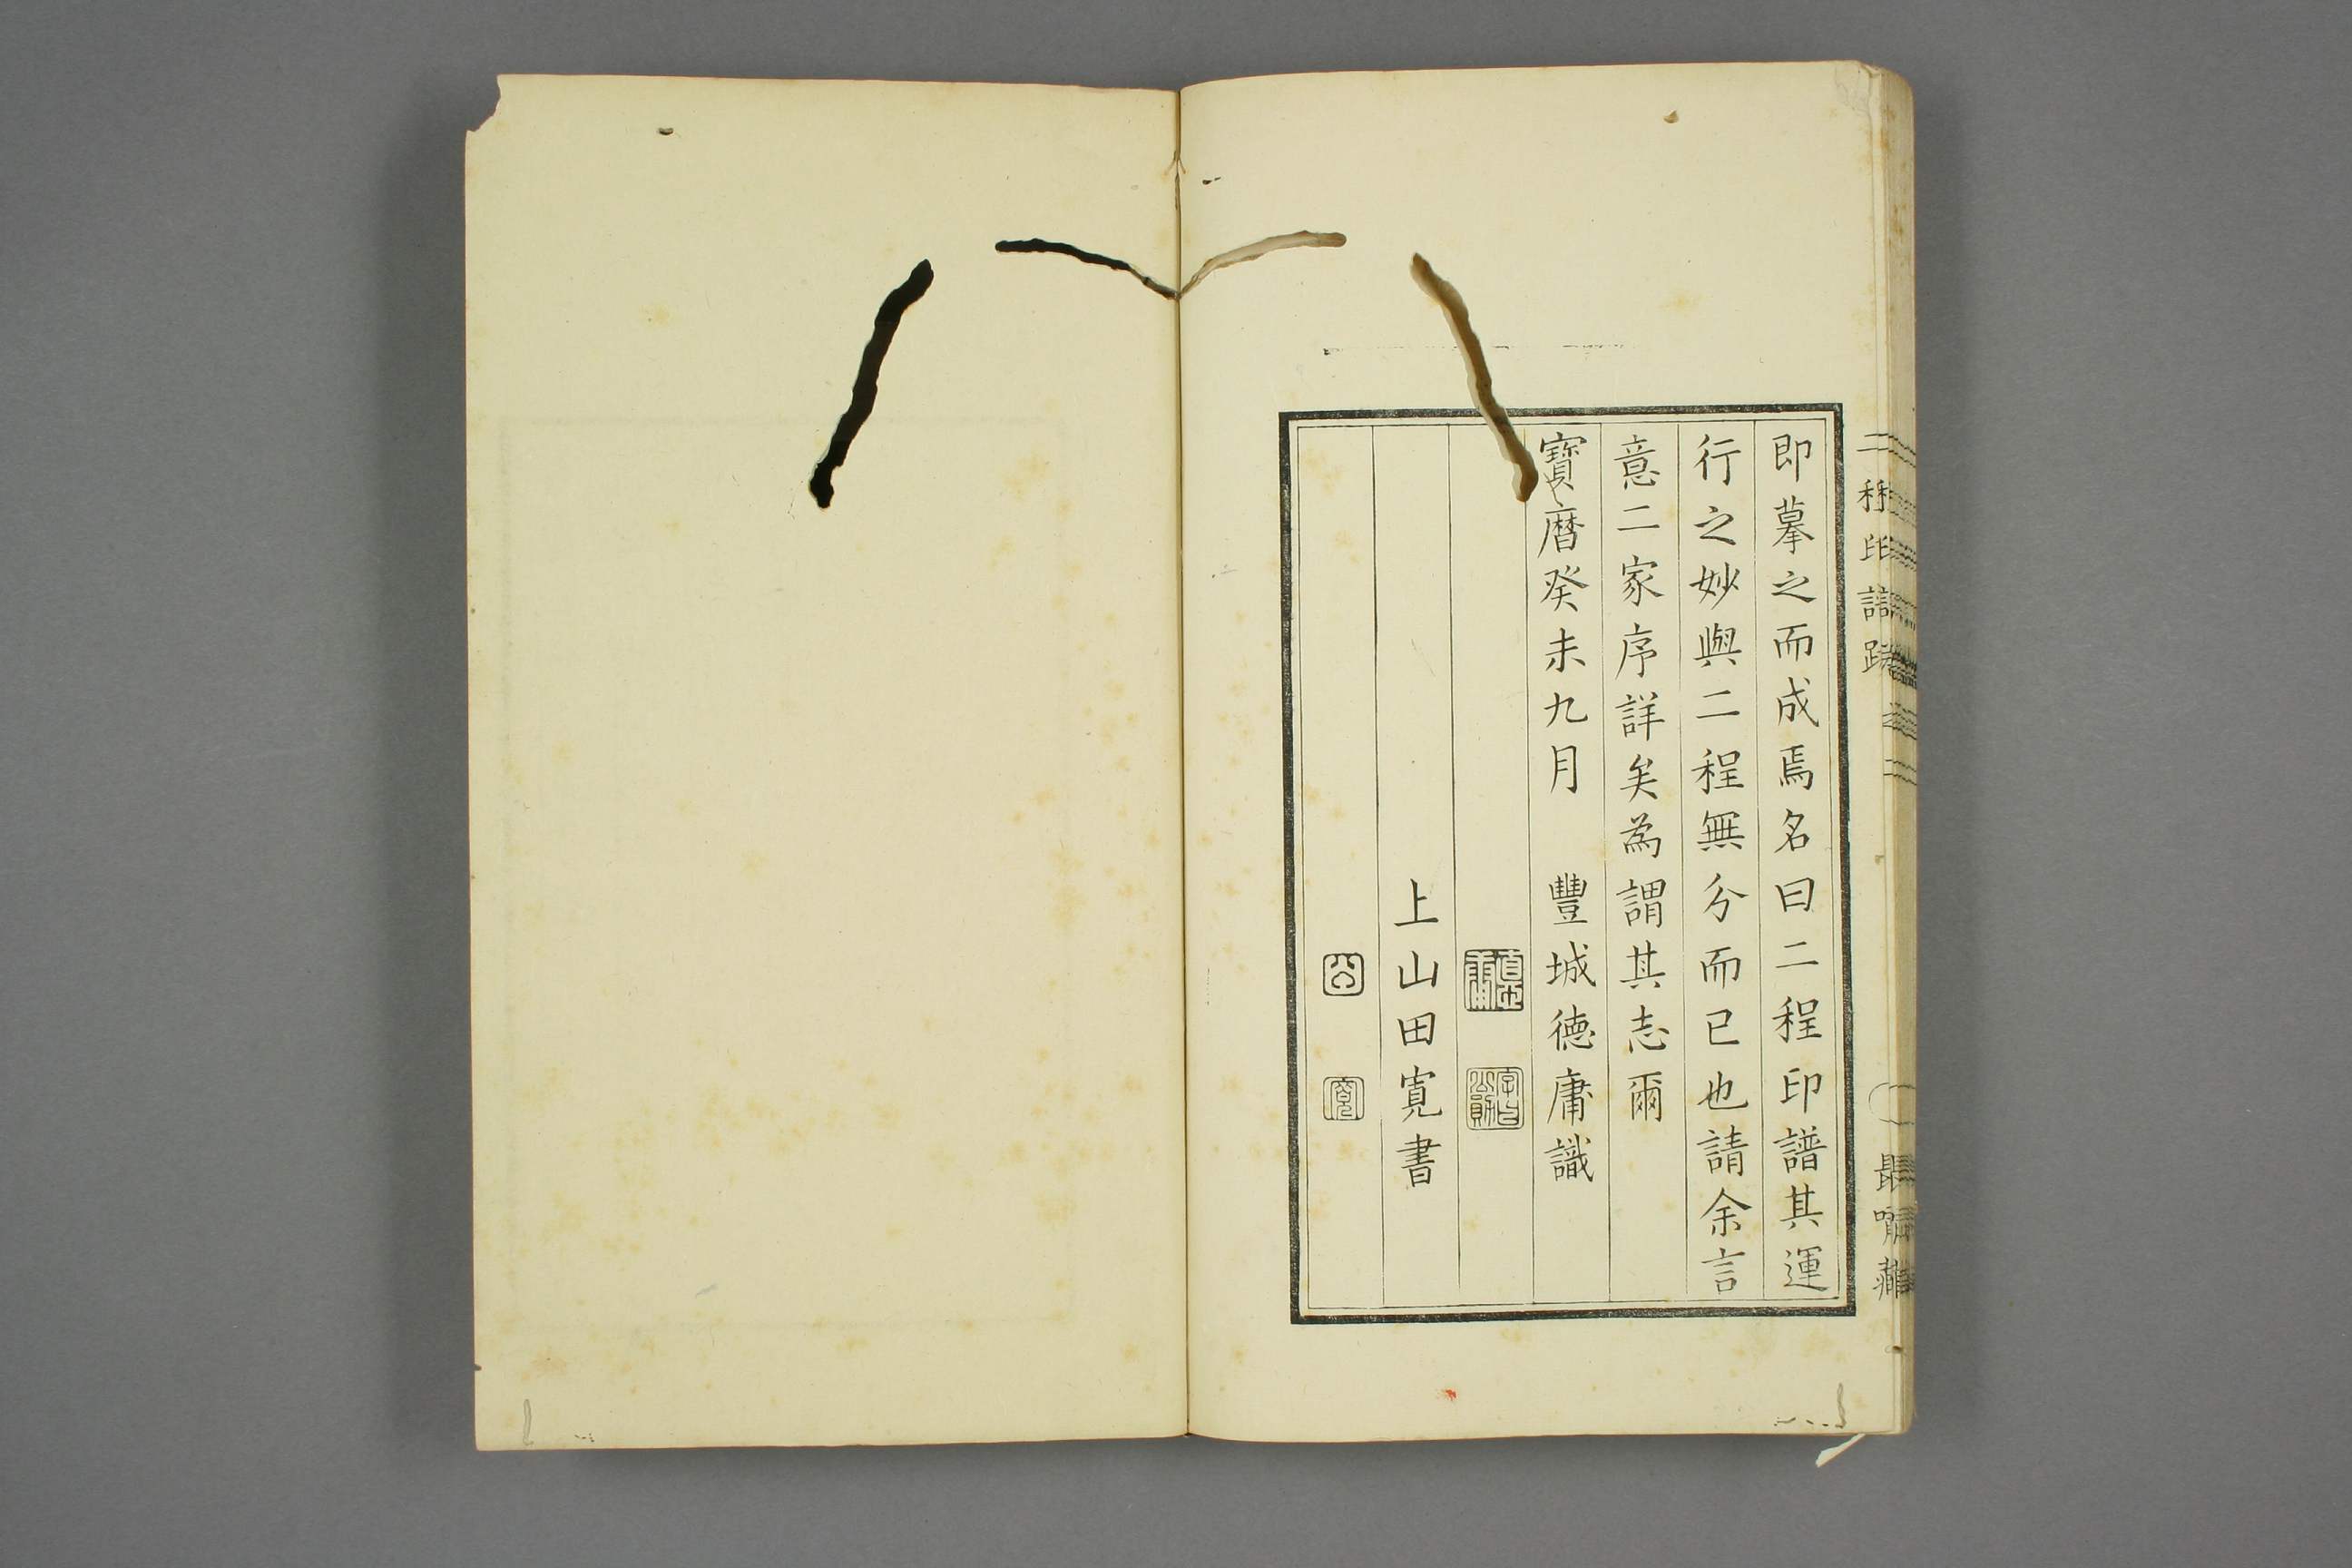 二程印譜跋
即摹之而成焉名曰二程印譜其運
行之妙與二程無分而已也請余言
意二家序詳矣為謂其志爾
寶曆癸未九月　豐城德庸識
上山田寬書